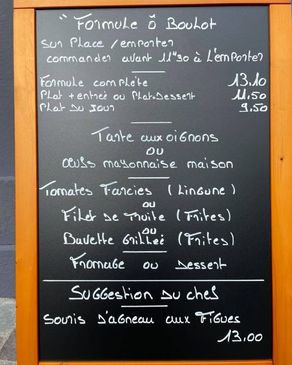 " Formule ô Boulot
Sur Place / emporter
commander avant 11"30 à L'emporter
Formule complète 13.10
Plat + entrée ou Plat.Dessert 11,50
Plat Du Jour 9,50
Tarte aux oignons
ou
Œufs mayonnaise maison
Tomates Farcies (Linguine)
ou
Filet de Truite (Frites)
ou
Bavette Grillée (Frites)
Fromage ou Dessert
Suggestion Du chef
Souris D'agneau aux Figues
13.00